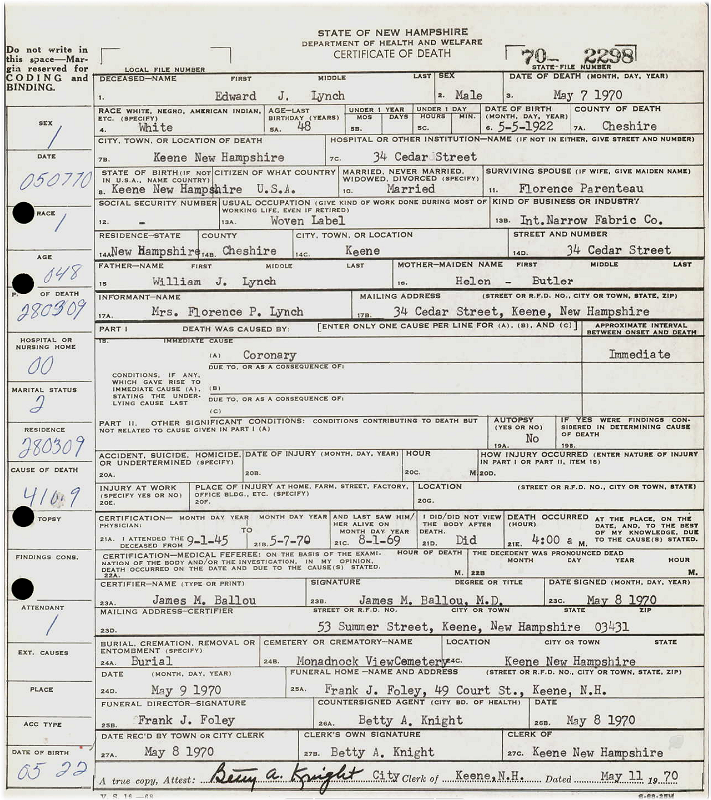 STATE OF NEW HAMPSHIRE
DEPARTMENT OF HEALTH AND WELFARE
CERTIFICATE OF DEATH
70- 2298
LOCAL FILE NUMBER STATE FILE NUMBER
Do not write in
this space—Mar-
gin reserved for
CODING and
BINDING.
DECEASED—NAME FIRST MIDDLE LAST SEX DATE OF DEATH (MONTH, DAY, YEAR)
1. Edward J. Lynch 2. Male 3. May 7 1970
RACE WHITE, NEGRO, AMERICAN INDIAN, ETC. (SPECIFY) AGE—LAST BIRTHDAY (YEARS) UNDER 1 YEAR MOS DAYS UNDER 1 DAY HOURS MIN. DATE OF BIRTH (MONTH, DAY, YEAR) COUNTY OF DEATH
4. White 5A. 48 5B. 5C. 6. 5-5-1922 7A. Cheshire
CITY, TOWN, OR LOCATION OF DEATH HOSPITAL OR OTHER INSTITUTION—NAME (IF NOT IN EITHER, GIVE STREET AND NUMBER)
7B. Keene New Hampshire 7C. 34 Cedar Street
STATE OF BIRTH (IF NOT IN U.S.A., NAME COUNTRY) CITIZEN OF WHAT COUNTRY MARRIED, NEVER MARRIED, WIDOWED, DIVORCED (SPECIFY) SURVIVING SPOUSE (IF WIFE, GIVE MAIDEN NAME)
8. Keene New Hampshire U.S.A. 10. Married 11. Florence Parenteau
SOCIAL SECURITY NUMBER USUAL OCCUPATION (GIVE KIND OF WORK DONE DURING MOST OF WORKING LIFE, EVEN IF RETIRED) KIND OF BUSINESS OR INDUSTRY
12. - 13A. Woven Label 13B. Int.Narrow Fabric Co.
RESIDENCE—STATE COUNTY CITY, TOWN, OR LOCATION STREET AND NUMBER
14A. New Hampshire 14B. Cheshire 14C. Keene 14D. 34 Cedar Street
FATHER—NAME FIRST MIDDLE LAST MOTHER—MAIDEN NAME FIRST MIDDLE LAST
15 William J. Lynch 16 Helen - Butler
INFORMANT—NAME MAILING ADDRESS (STREET OR R.F.D. NO., CITY OR TOWN, STATE, ZIP)
17A. Mrs. Florence P. Lynch 17B. 34 Cedar Street, Keene, New Hampshire
PART I DEATH WAS CAUSED BY: [ENTER ONLY ONE CAUSE PER LINE FOR (A), (B), AND (C)] APPROXIMATE INTERVAL BETWEEN ONSET AND DEATH
18. IMMEDIATE CAUSE
(A) Coronary Immediate
DUE TO, OR AS A CONSEQUENCE OF:
CONDITIONS, IF ANY, WHICH GAVE RISE TO IMMEDIATE CAUSE (A), STATING THE UNDERLYING CAUSE LAST
(B)
DUE TO, OR AS A CONSEQUENCE OF:
(C)
PART II. OTHER SIGNIFICANT CONDITIONS: CONDITIONS CONTRIBUTING TO DEATH BUT NOT RELATED TO CAUSE GIVEN IN PART I (A) AUTOPSY (YES OR NO) IF YES WERE FINDINGS CONSIDERED IN DETERMINING CAUSE OF DEATH
19A. No 19B.
ACCIDENT, SUICIDE, HOMICIDE, OR UNDETERMINED (SPECIFY) DATE OF INJURY (MONTH, DAY, YEAR) HOUR HOW INJURY OCCURRED (ENTER NATURE OF INJURY IN PART I OR PART II, ITEM 18)
20A. 20B. 20C. M. 20D.
INJURY AT WORK (SPECIFY YES OR NO) PLACE OF INJURY AT HOME, FARM, STREET, FACTORY, OFFICE BLDG., ETC. (SPECIFY) LOCATION (STREET OR R.F.D. NO., CITY OR TOWN, STATE)
20E. 20F. 20G.
CERTIFICATION— MONTH DAY YEAR MONTH DAY YEAR AND LAST SAW HIM/HER ALIVE ON MONTH DAY YEAR I DID/DID NOT VIEW THE BODY AFTER DEATH. DEATH OCCURRED (HOUR) AT THE PLACE, ON THE DATE, AND, TO THE BEST OF MY KNOWLEDGE, DUE TO THE CAUSE(S) STATED.
PHYSICIAN: TO
21A. I ATTENDED THE DECEASED FROM 9-1-45 21B. 5-7-70 21C. 8-1-69 21D. Did 21E. 4:00 a M.
CERTIFICATION—MEDICAL REFEREE: ON THE BASIS OF THE EXAMINATION OF THE BODY AND/OR THE INVESTIGATION, IN MY OPINION, DEATH OCCURRED ON THE DATE AND DUE TO THE CAUSE(S) STATED. HOUR OF DEATH THE DECEDENT WAS PRONOUNCED DEAD MONTH DAY YEAR HOUR
22A. M. 22B M.
CERTIFIER—NAME (TYPE OR PRINT) SIGNATURE DEGREE OR TITLE DATE SIGNED (MONTH, DAY, YEAR)
23A. James M. Ballou 23B. James M. Ballou, M.D. 23C. May 8 1970
MAILING ADDRESS—CERTIFIER STREET OR R.F.D. NO. CITY OR TOWN STATE ZIP
23D. 53 Summer Street, Keene, New Hampshire 03431
BURIAL, CREMATION, REMOVAL OR ENTOMBMENT (SPECIFY) CEMETERY OR CREMATORY—NAME LOCATION CITY OR TOWN STATE
24A. Burial 24B. Monadnock ViewCemetery 24C. Keene New Hampshire
DATE (MONTH, DAY, YEAR) FUNERAL HOME—NAME AND ADDRESS (STREET OR R.F.D. NO., CITY OR TOWN, STATE, ZIP)
24D. May 9 1970 25A. Frank J. Foley, 49 Court St., Keene, N.H.
FUNERAL DIRECTOR—SIGNATURE COUNTERSIGNED AGENT (CITY BD. OF HEALTH) DATE
25B. Frank J. Foley 26A. Betty A. Knight 26B. May 8 1970
DATE REC'D BY TOWN OR CITY CLERK CLERK'S OWN SIGNATURE CLERK OF
27A. May 8 1970 27B. Betty A. Knight 27C. Keene New Hampshire
A true copy, Attest: Betty A. Knight City Clerk of Keene, N.H. Dated May 11 1970
SEX
1
DATE
050770
RACE
1
AGE
048
OF DEATH
280309
HOSPITAL OR
NURSING HOME
00
MARITAL STATUS
2
RESIDENCE
280309
CAUSE OF DEATH
4109
TOPSY
FINDINGS CONS.
ATTENDANT
1
EXT. CAUSES
PLACE
ACC TYPE
DATE OF BIRTH
05 22